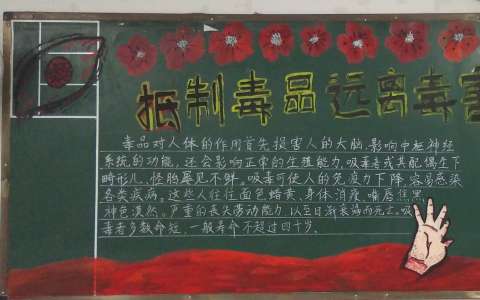 抵制毒品 远离毒害
毒品对人体的作用首先损害人的大脑,影响中枢神经
系统的功能,还会影响正常的生殖能力,吸毒者或其配偶生下
畸形儿、怪胎屡见不鲜。吸毒可使人的免疫力下降,容易感染
各类疾病。这些人往往面色蜡黄、身体消瘦、嘴唇焦黑
神色漠然。严重的丧失劳动能力,以至日渐长期而死亡。吸
毒者多数命短,一般寿命不超过四十岁。